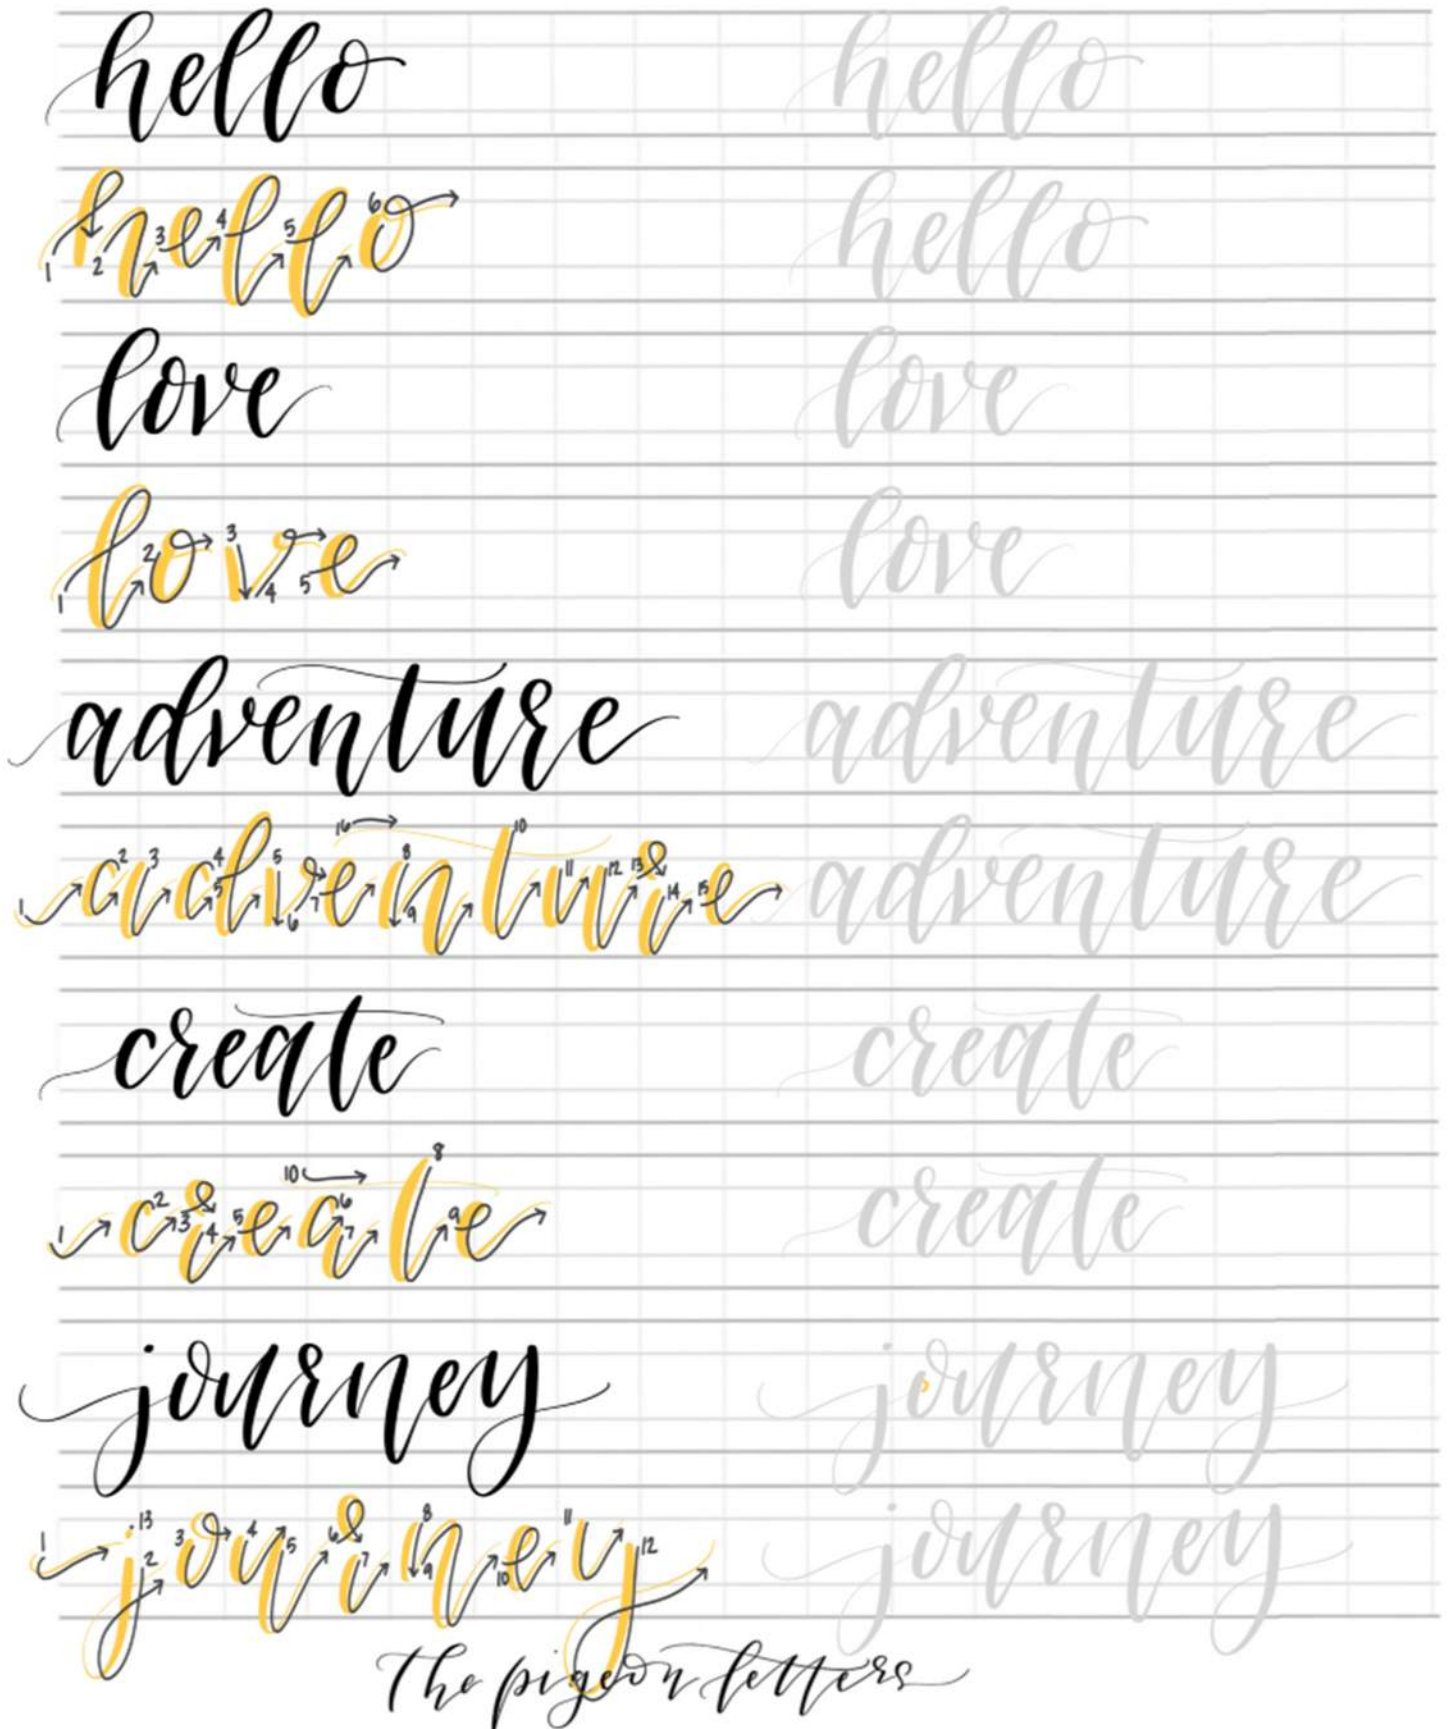 hello hello
hello hello
love love
love love
adventure adventure
adventure adventure
create create
create create
journey journey
journey journey
the pigeon letters